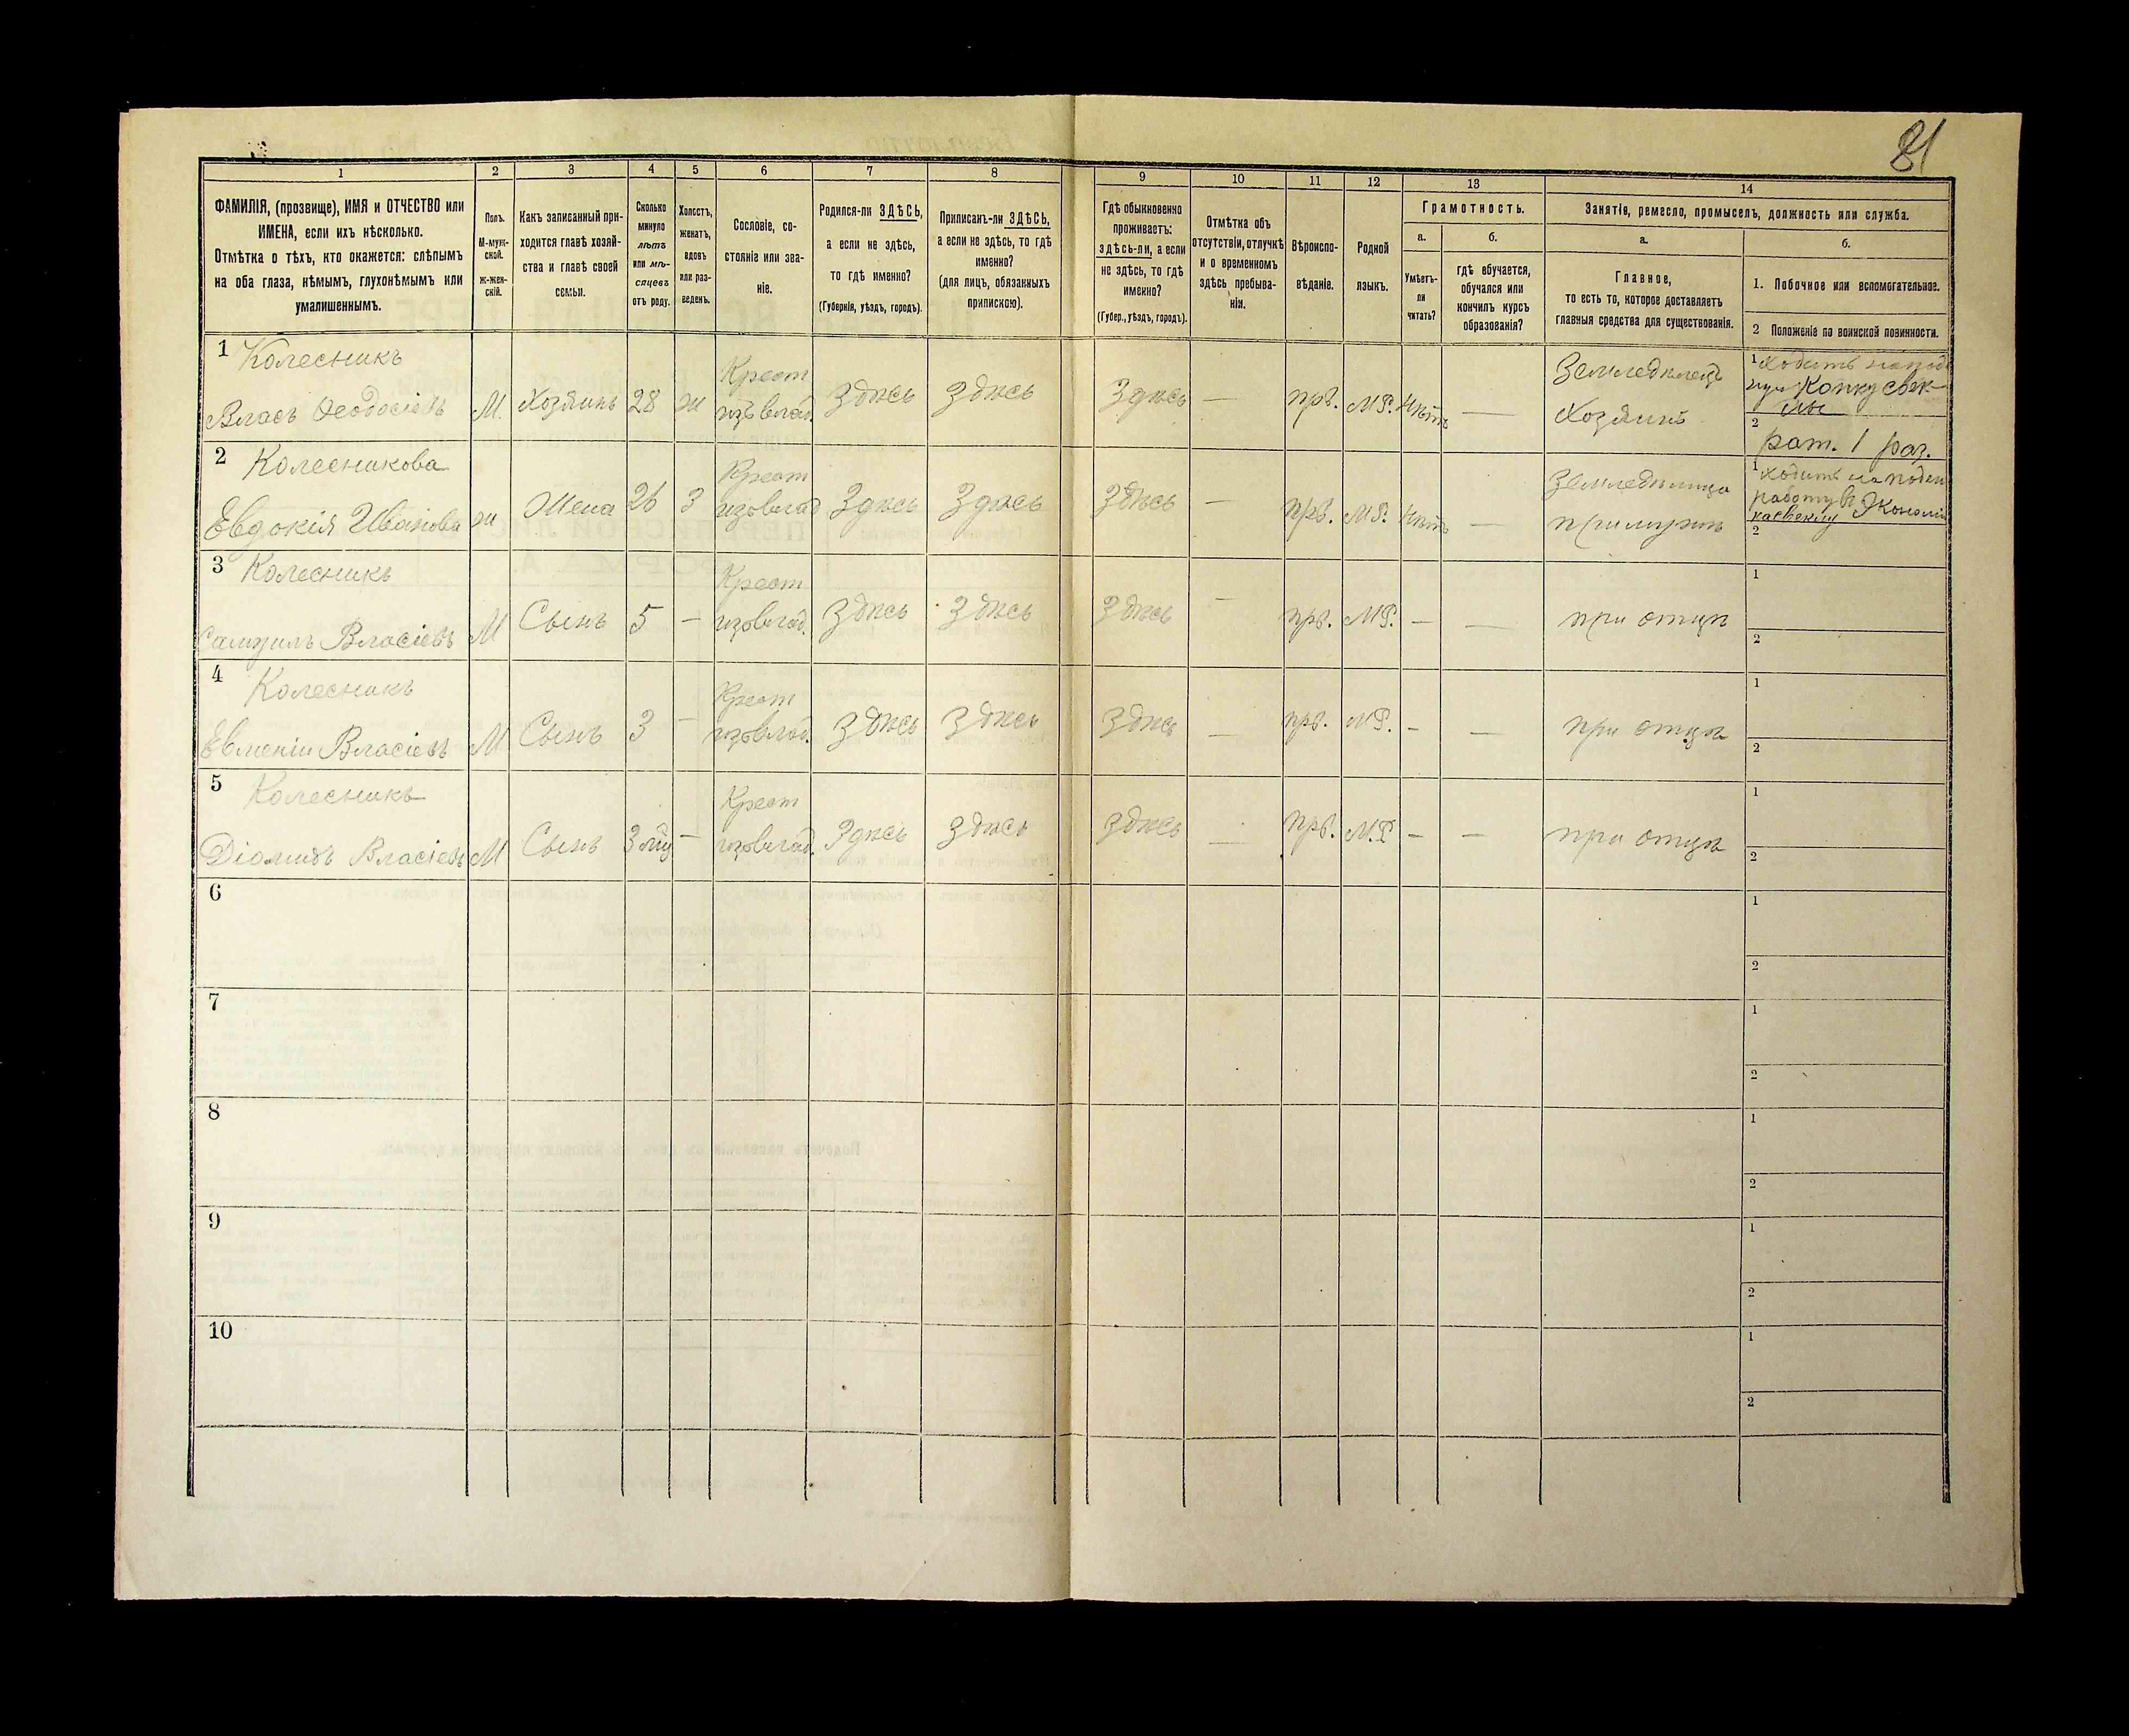 81
1
2
3
4
5
6
7
8
9
10
11
12
13
14
ФАМИЛІЯ, (прозвище), ИМЯ и ОТЧЕСТВО или
ИМЕНА, если ихъ нѣсколько.
Отмѣтка о тѣхъ, кто окажется: слѣпымъ
на оба глаза, нѣмымъ, глухонѣмымъ или
умалишеннымъ.
Полъ.
М-муж-
ской.
ж-жен-
скій.
Какъ записанный при-
ходится главѣ хозяй-
ства и главѣ своей
семьи.
Сколько
минуло
лѣтъ
или мѣ-
сяцевъ
отъ роду.
Холостъ,
женатъ,
вдовъ
или раз-
веденъ.
Сословіе, со-
стояніе или зва-
ніе.
Родился-ли ЗДѢСЬ,
а если не здѣсь,
то гдѣ именно?
(Губернія, уѣздъ, городъ).
Приписанъ-ли ЗДѢСЬ,
а если не здѣсь, то гдѣ
именно?
(для лицъ, обязанныхъ
припискою).
Гдѣ обыкновенно
проживаетъ:
здѣсь-ли, а если
не здѣсь, то гдѣ
именно?
(Губер., уѣздъ, городъ).
Отмѣтка объ
отсутствіи, отлучкѣ
и о временномъ
здѣсь пребыва-
ніи.
Вѣроиспо-
вѣданіе.
Родной
языкъ.
Грамотность.
а.
Умѣетъ-
ли
читать?
б.
гдѣ обучается,
обучался или
кончилъ курсъ
образованія?
Занятіе, ремесло, промыселъ, должность или служба.
а.
Главное,
то есть то, которое доставляетъ
главныя средства для существованія.
б.
1. Побочное или вспомогательное.
2 Положеніе по воинской повинности.
1 Колесникъ
Власъ Ѳеодосіевъ
М.
Хозяинъ
28
ж
Крест
изъ влад.
Здѣсь
Здѣсь
Здѣсь
—
прв.
М.Р.
Нѣтъ
—
Земледѣлецъ
Хозяинъ
1 Ходитъ на
Копку свек-
лы
2
рат. 1 раз.
2 Колесникова
Евдокія Иванова
ж
Жена
26
З
Крест
изъ влад
Здѣсь
Здѣсь
Здѣсь
—
прв.
М.Р.
Нѣтъ
—
Земледѣлица
при мужѣ
1 Ходитъ на поден
работу в Экономію
2
3 Колесникъ
Самуилъ Власіевъ
М
Сынъ
5
—
Крест
изъ влад.
Здѣсь
Здѣсь
Здѣсь
—
прв.
М.Р.
—
—
при отцѣ
1
2
4 Колесникъ
Евменій Власіевъ
М
Сынъ
3
—
Крест
изъ влад.
Здѣсь
Здѣсь
Здѣсь
—
прв.
М.Р.
—
—
при отцѣ
1
2
5 Колесникъ
Діомидъ Власіевъ
М
Сынъ
3 мц
—
Крест
изъ влад.
Здѣсь
Здѣсь
Здѣсь
—
прв.
М.Р.
—
—
при отцѣ
1
2
6
1
2
7
1
2
8
1
2
9
1
2
10
1
2